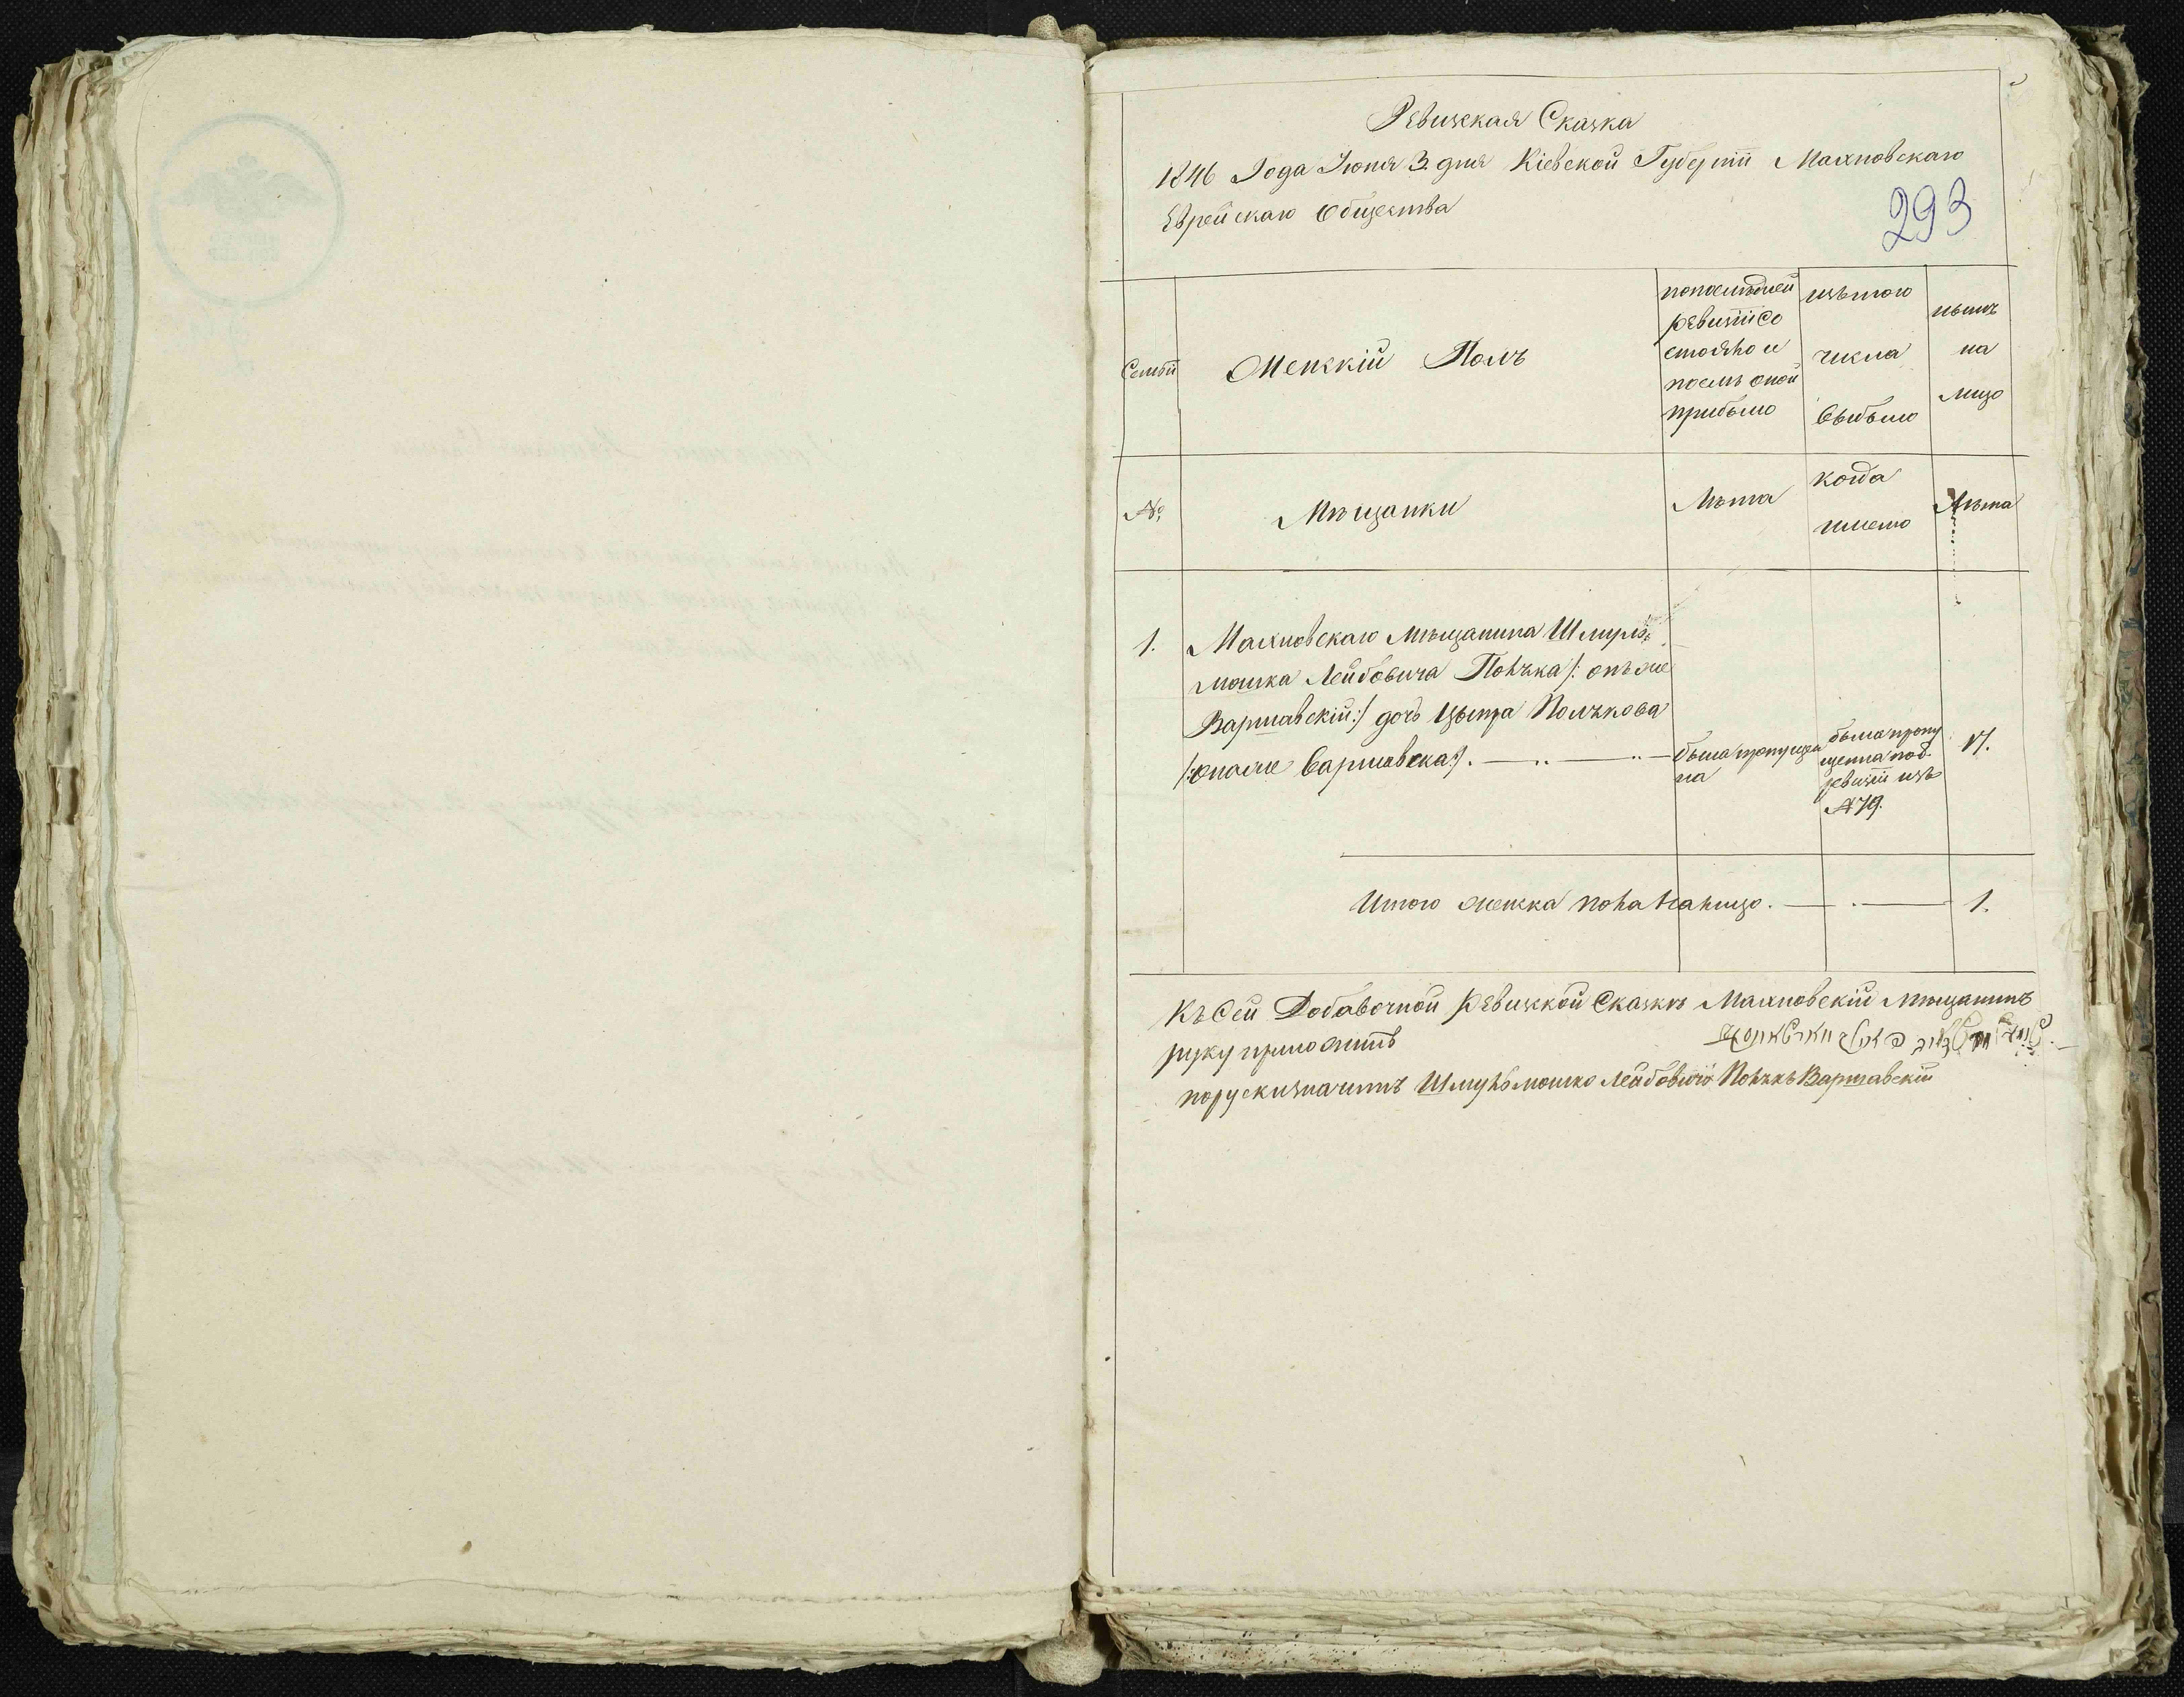 Ревизская Сказка
1846 Года Июня 3. дня Кіевской Губерніи Махновскаго
Еврейскаго Общества
293
Семьи
Женскій Полъ
попослѣдней
ревизіи Со
стояло и
послѣ оной
прибыло
изътого
числа
выбыло
нынѣ
на
лицо
№,
Мѣщанки
Лѣта
когда
имено
Лѣта
1. Махновскаго Мѣщанина Шмуль
мошка Лейбовича Полька /: онъ же
Варшавскій:/ дочь Цыпра Полькова
/:онаже Варшавска:/. — была пропущен
на
была пропу
щенна по 8.
ревизіи изъ
№ 79.
17.
Итого женска пола налицо. — 1.
Къ Сей Добавочной Ревизкой Сказкѣ Махновскій Мѣщанинъ
руку приложилъ
порускизначитъ Шмульмошко Лейбовичъ Полькъ Варшавскій